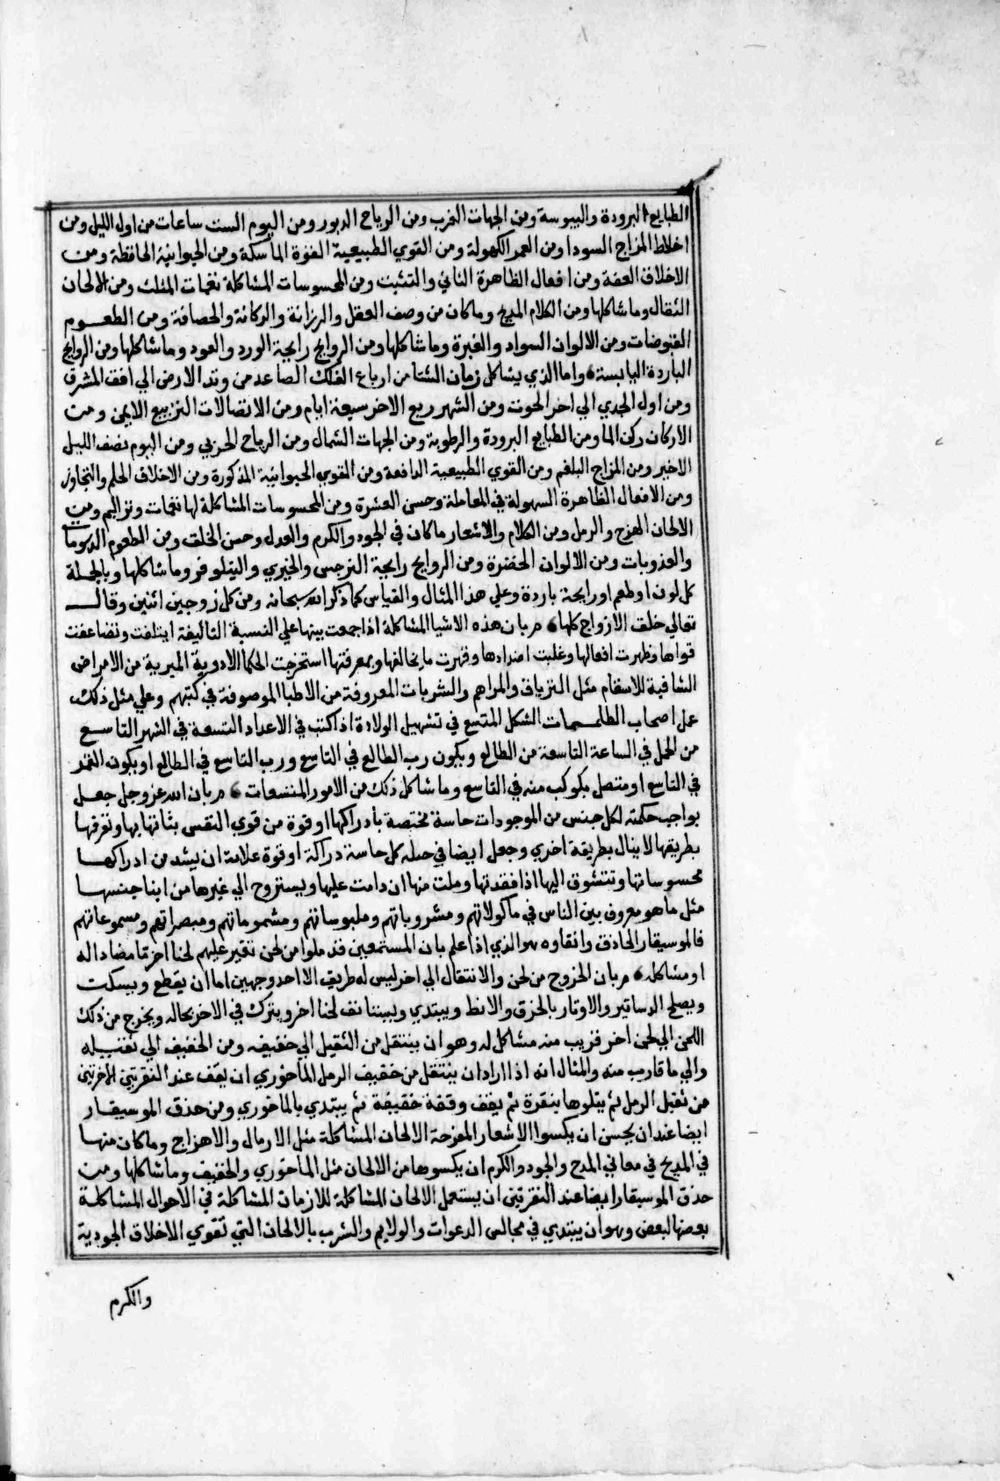 الطبايع البرودة واليبوسة ومن الجهات الغرب ومن الرياح الدبور ومن اليوم الست ساعات من اول الليل ومن
اخلاط المزاج السودا ومن العمر الكهولة ومن القوي الطبيعية القوة الماسكة ومن الحيوانية الحافظة ومن
الاخلاق العفة ومن افعال الظاهرة التاني والتثبت ومن المحسوسات المشاكلة نغمات المثلث ومن الالحان
الثقال وما شاكلها ومن الكلام المديح وما كان من وصف العقل والرزانة والركانة والحصافة ومن الطعوم
ومن الالوان السواد والغبرة وما شاكلها ومن الروايح رايحة الورد والعود وما شاكلها ومن الروايح
الباردة اليابسة واما الذي يشاكل زمان الشتا من ارباع الفلك الصاعد من وتد الارض الي افق المشرق
ومن اول الجدي الي اخر الحوت ومن الشهر ربع الاخر سبعة ايام ومن الاتصالات التربيع الايمن ومن
الاركان ركن الما ومن الطبايع البرودة والرطوبة ومن الجهات الشمال ومن الرياح الجربي ومن اليوم نصف الليل
الاخير ومن المزاج البلغم ومن القوي الطبيعية الدافعة ومن القوي الحيوانية المذكورة ومن الاخلاق الحلم والتجاوز
ومن الافعال الظاهرة السهولة في المعاملة وحسن العشرة ومن المحسوسات المشاكلة لها نغمات وتر البم ومن
الالحان الهزج والرمل ومن الكلام والاشعار ما كان في الجود والكرم والعدل وحسن الخلق ومن المطعوم الدسومات
والعذوبات ومن الالوان الخضرة ومن الروايح رايحة النرجس والخيري والنيلوفر وما شاكلها وبالجملة
كل لون او طعم او رايحة باردة وعلي هذا المثال والقياس كما ذكر الله سبحانه ومن كل زوجين اثنين وقال
تعالي خلق الازواج كلها بان هذه الاشيا المشاكلة اذا جمعت بينها علي النسبة التاليفية ايتلفت وتضاعفت
قواها وظهرت افعالها وغلبت اضدادها وقهرت ما يخالفها وبمعرفتها استخرجت الحكما الادوية المبرية من الامراض
الشافية للاسقام مثل الترياق والمراهم والشربات المعروفة من الاطبا الموصوفة في كتبهم وعلي مثل ذلك
عمل اصحاب الطلسمات الشكل المتسع في تسهيل الولادة اذا كتب في الاعداد التسعة في الشهر التاسع
من الحمل في الساعة التاسعة من الطالع ويكون رب الطالع في التاسع ورب التاسع في الطالع او يكون القمر
في التاسع او متصل بكوكب منه في التاسع وما شاكل ذلك من الامور المتسعات بان الله عز وجل جعل
بواجب حكمته لكل جنس من الموجودات حاسة مختصة بادراكها او قوة من قوي النفس بها وتعرفها
بطريقها لا ينال بطريقة اخري وجعل ايضا في جبلة كل حاسة دراكة او قوة علامة ان من ادراكها
محسوساتها وتتشوق اليها اذا فقدتها وملت منها ان دامت عليها ويستروح الي غيرها من ابنا جنسها
مثل ما هو معروف بين الناس في ماكولاتهم ومشروباتهم وملبوساتهم ومشموماتهم ومبصراتهم ومسموعاتهم
فالموسيقار الحاذق هو الذي اذا علم بان المستمعين قد ملوا من لحن تغير عليهم لحنا اخر مضادا له
او مشاكله بان الخروج من لحن والانتقال الي اخر ليس له طريق الا احد وجهين اما ان يقطع ويسكت
ويصلح الدساتير والاوتار بالحزق والارخا ويبتدي ويستانف لحنا اخر ويترك في الاخر بحاله ويخرج من ذلك
اللحن الي لحن اخر قريب منه مشاكل له وهو ان ينتقل من الثقيل الي خفيفه ومن الخفيف الي ثقيله
والي ما قارب منه والمثال انه اذا اراد ان ينتقل من خفيف الرمل الماخوري ان يقف عند النقرتين الاخرتين
من ثقيل الرمل ثم يتلوها بنقرة ثم يقف وقفة خفيفة ثم يبتدي بالماخوري ومن حذق الموسيقار
ايضا عند ان يحسن ان يكسوا الاشعار المفرحة الالحان المشاكلة مثل الارمال والاهزاج وما كان منها
في المديح في معاني المدح والجود والكرم ان يكسوها من الالحان مثل الماخوري والخفيف وما شاكلها ومن
حذق الموسيقار ايضا عند النقرتين ان يستعمل الالحان المشاكلة للازمان المشاكلة في الاحوال المشاكلة
بعضها لبعض وهو ان يبتدي في مجالس الدعوات والولايم والشرب بالالحان التي تقوي الاخلاق الجودية
والكرم